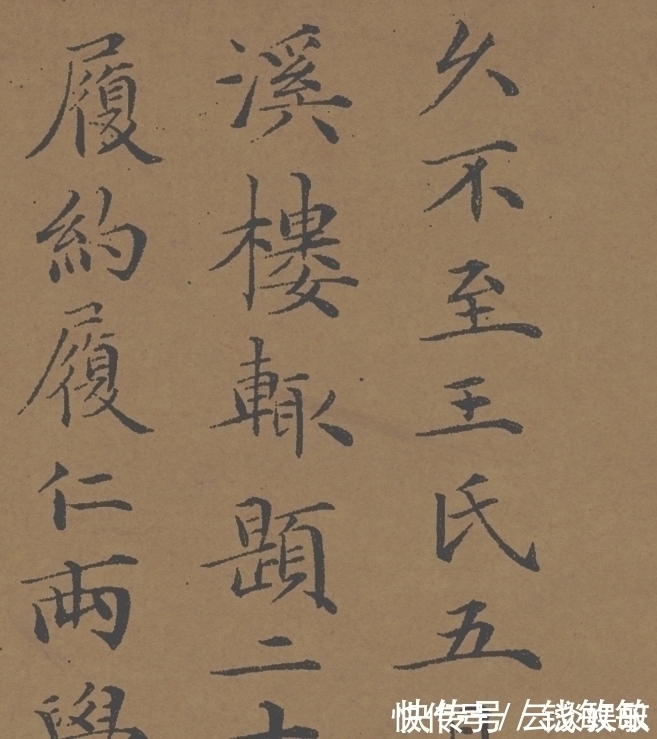 久不至王氏五月
溪樓輒題二十
履約履仁兩學
快传号/